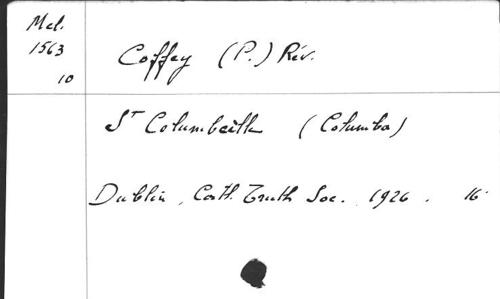 Mel.
1563
10
Coffey (P.) Rév.
St Columbcille (Columba)
Dublin, Cath. Truth Soc. 1926. 16°